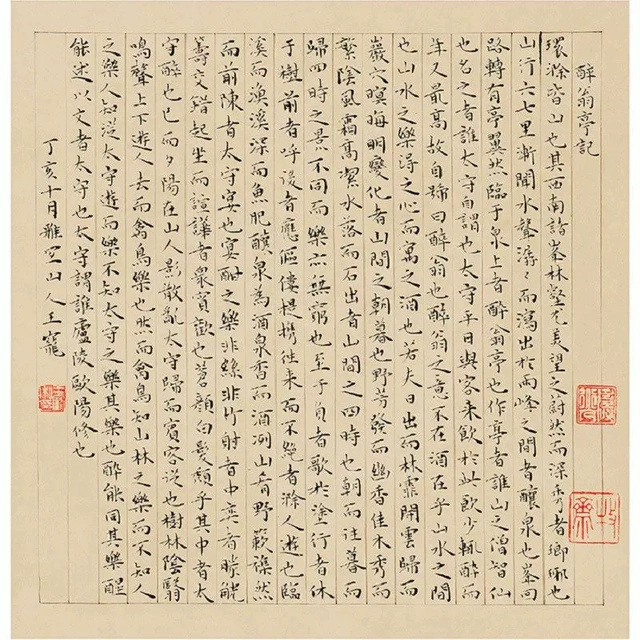 醉翁亭記
環滁皆山也其西南諸峯林壑尤美望之蔚然而深秀者瑯琊也
山行六七里漸聞水聲潺〻而瀉出於兩峰之間者釀泉也峯回
路轉有亭翼然臨于泉上者醉翁亭也作亭者誰山之僧智仙
也名之者誰太守自謂也太守平日與客来飲於此飲少輒醉而
年又最高故自號曰醉翁也醉翁之意不在酒在乎山水之間
也山水之樂得之心而寓之酒也若夫日出而林霏開雲歸而
巖穴暝晦明變化者山間之朝暮也野芳發而幽香佳木秀而
繁陰風霜高潔水落而石出者山間之四時也朝而往暮而
歸四時之景不同而樂亦無窮也至于負者歌於塗行者休
于樹前者呼後者應傴僂提攜往来而不絶者滁人遊也臨
溪而漁溪深而魚肥釀泉為酒泉香而酒洌山肴野蔌雜然
而前陳者太守宴也宴酣之樂非絲非竹射者中奕者勝觥
籌交錯起坐而諠譁者衆賓歡也蒼顏白髮頹乎其中者太
守醉也已而夕陽在山人影散亂太守歸而賓客從也樹林陰翳
鳴聲上下遊人去而禽鳥樂也然而禽鳥知山林之樂而不知人
之樂人知從太守遊而樂不知太守之樂其樂也醉能同其樂醒
能述以文者太守也太守謂誰廬陵歐陽修也
丁亥十月雅宜山人王寵